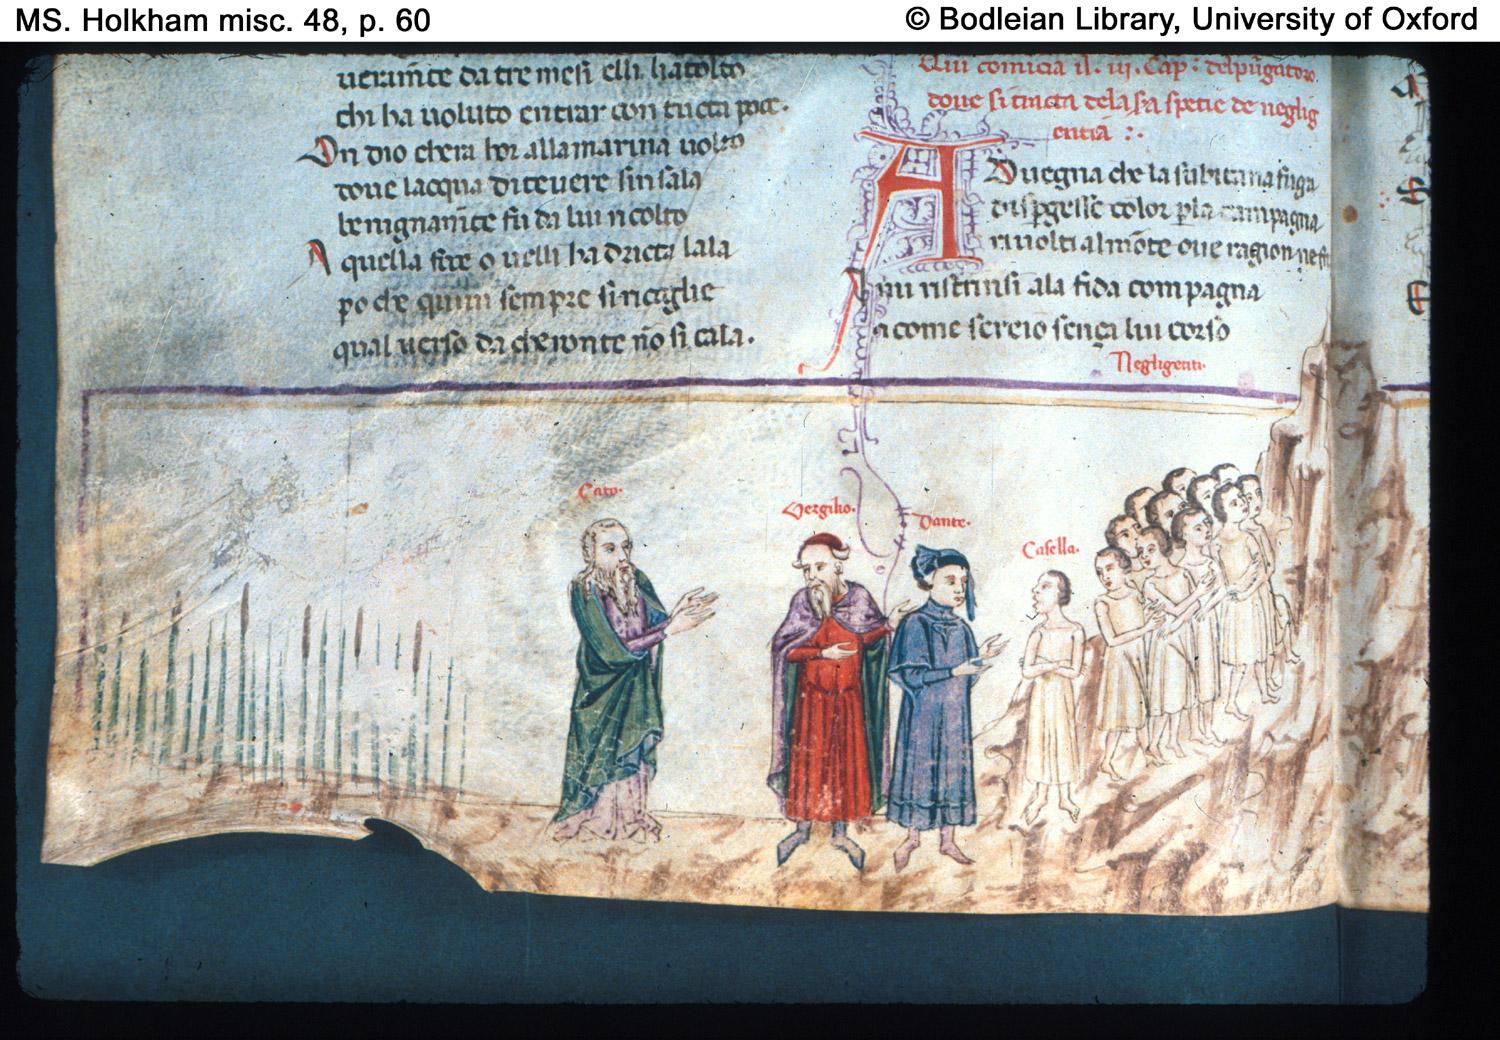 MS. Holkham misc. 48, p. 60
© Bodleian Library, University of Oxford
ueram̄te da tre mesi elli ha tolto
chi ha uoluto entrar con tucta pace.
On dio chera hor alla marina uolto
doue lacqua di teuere sinsala
benignam̄te fu da lui ricolto
A quella foce o uelli ha dricta lala
po che quiui sempre si ricoglie
qual uerso da cheronte nō si cala.
Qui comicia il. iij. Cap: del purgatoro.
doue si tracta dela sa spetie de neglig
entia :.
Auegna che la subitana fuga
dispgesse color p la campagna
riuolti al mōte oue ragion ne fru
I mi ristrinsi ala fida compagna
a come sereio sença lui corso
Negligenti.
Cato.
Vergilio.
Dante.
Casella.